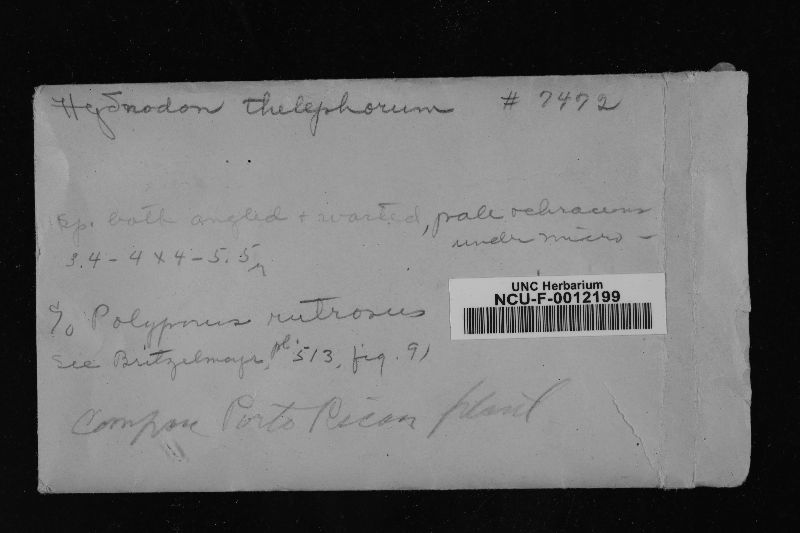 Hydnodon thelephorum # 7472
Sp. both angled + warted, pale ochraceus
under micro -
3.4 - 4 x 4 - 5.5
UNC Herbarium
NCU-F-0012199
Polyporus rutrosus
See Britzelmayr, pl. 513, fig. 91
Compare Porto Rican plant